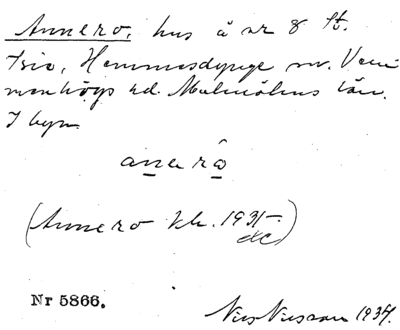 Annero, hus å nr 8 St.
Isie, Hemmesdynge sn. Vem
menhögs hd. Malmöhus län.
I byn
anerô
(Annero kk. 1931-)
Nr 5866.
Nils Nilsson 1934.